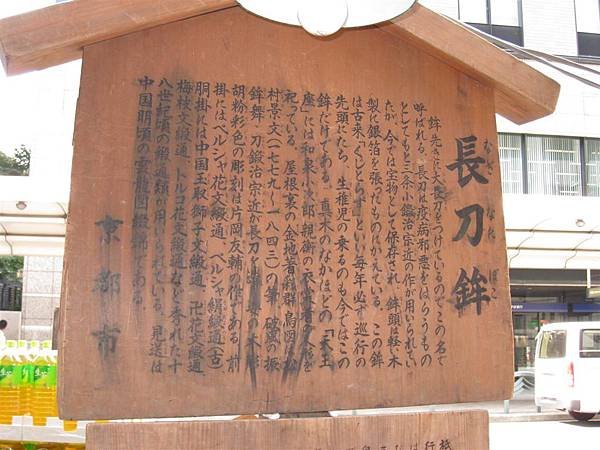 長刀鉾
なぎなたぼこ
鉾先きに大長刀をつけているのでこの名で
呼ばれる。長刀は疫病邪悪をはらうもの
としてもと三条小鍛治宗近の作が用いられてい
たが、今では宝物として保存され、鉾頭は軽い木
製に銀箔を張ったものにかえている。この鉾
は古来「くじとらず」といい毎年必ず巡行の
先頭にたち、生稚児の乗るのも今ではこの
鉾だけである。真木のなかほどの「天王
座」には和泉小次郎親衡の
祀っている。屋根裏の金地著彩群鳥図は松
村景文(一七七九〜一八四三)の筆、破風の
鉾舞、刀鍛治宗近が長刀を
胡粉彩色の彫刻は片岡友輔の作である。前
掛にはペルシャ花文緞通、ペルシャ絹緞通(古)
胴掛には中国玉取獅子文緞通、卍花文緞通、
梅枝文緞通、トルコ花文緞通など香れた十
八世紀頃の緞通類が用いられている。見送は
中国明頃の雲龍図綴錦である。
京都市